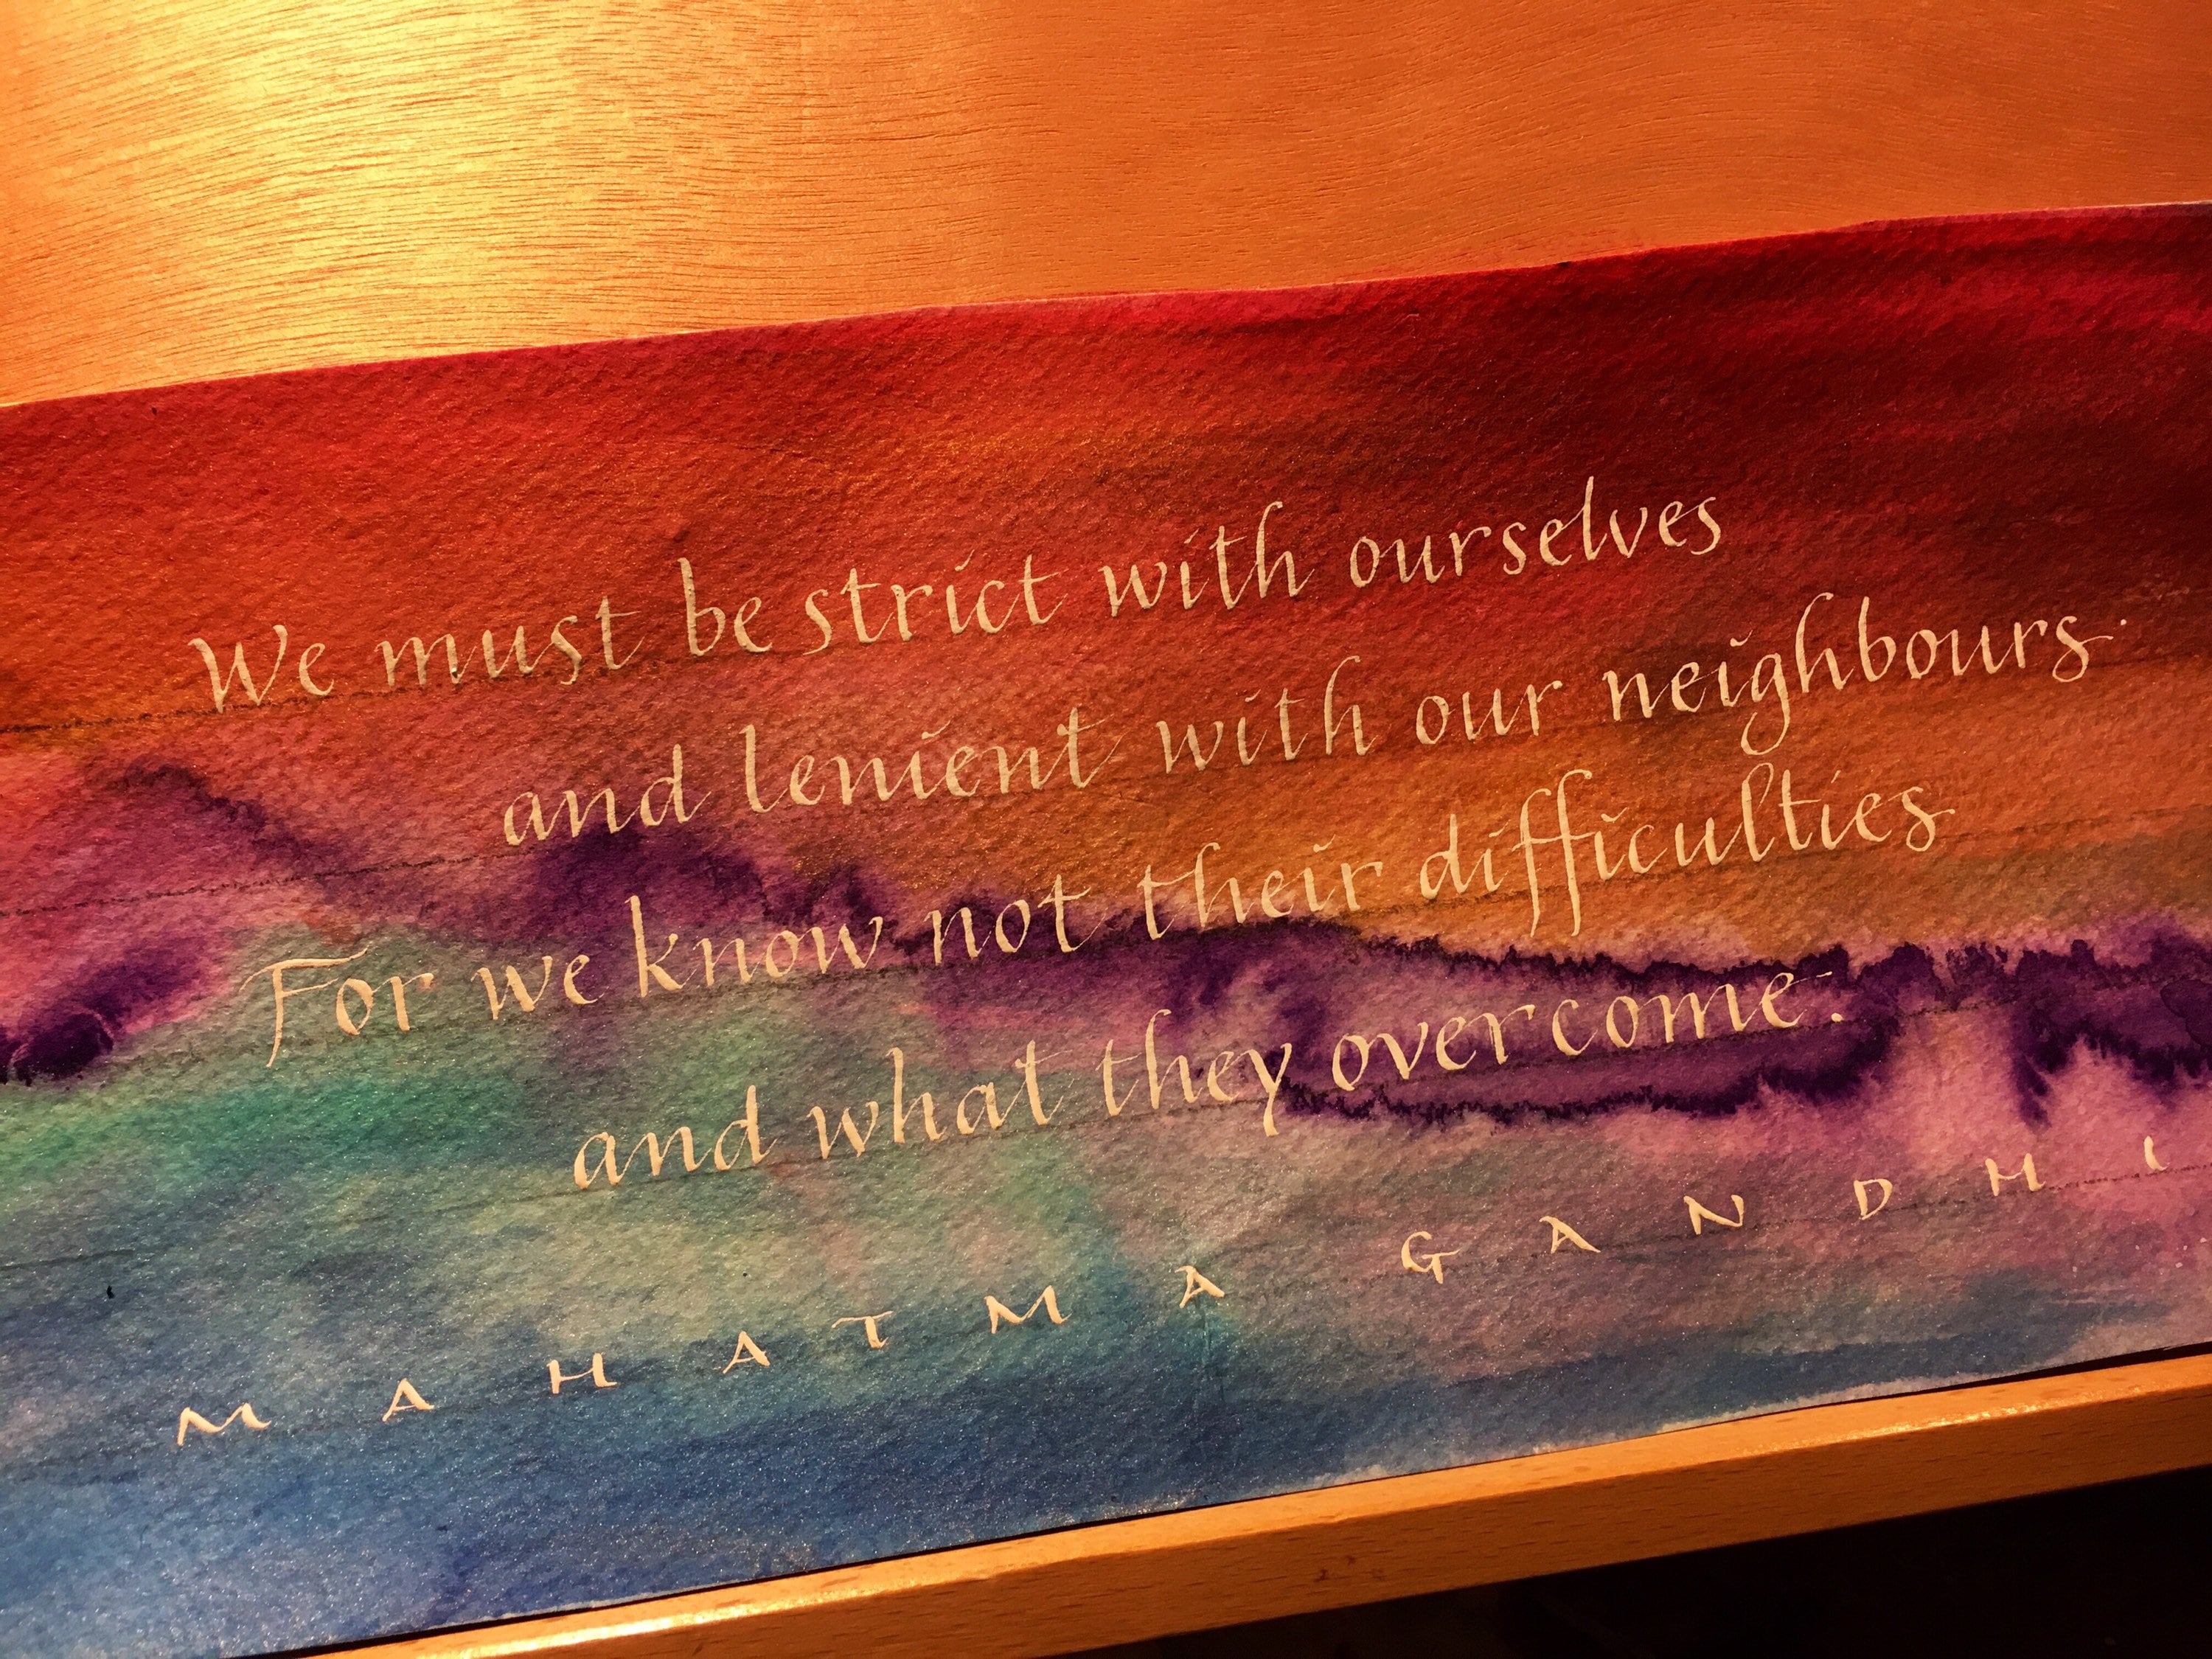 We must be strict with ourselves
and lenient with our neighbours.
For we know not their difficulties
and what they overcome.
MAHATMA GANDHI